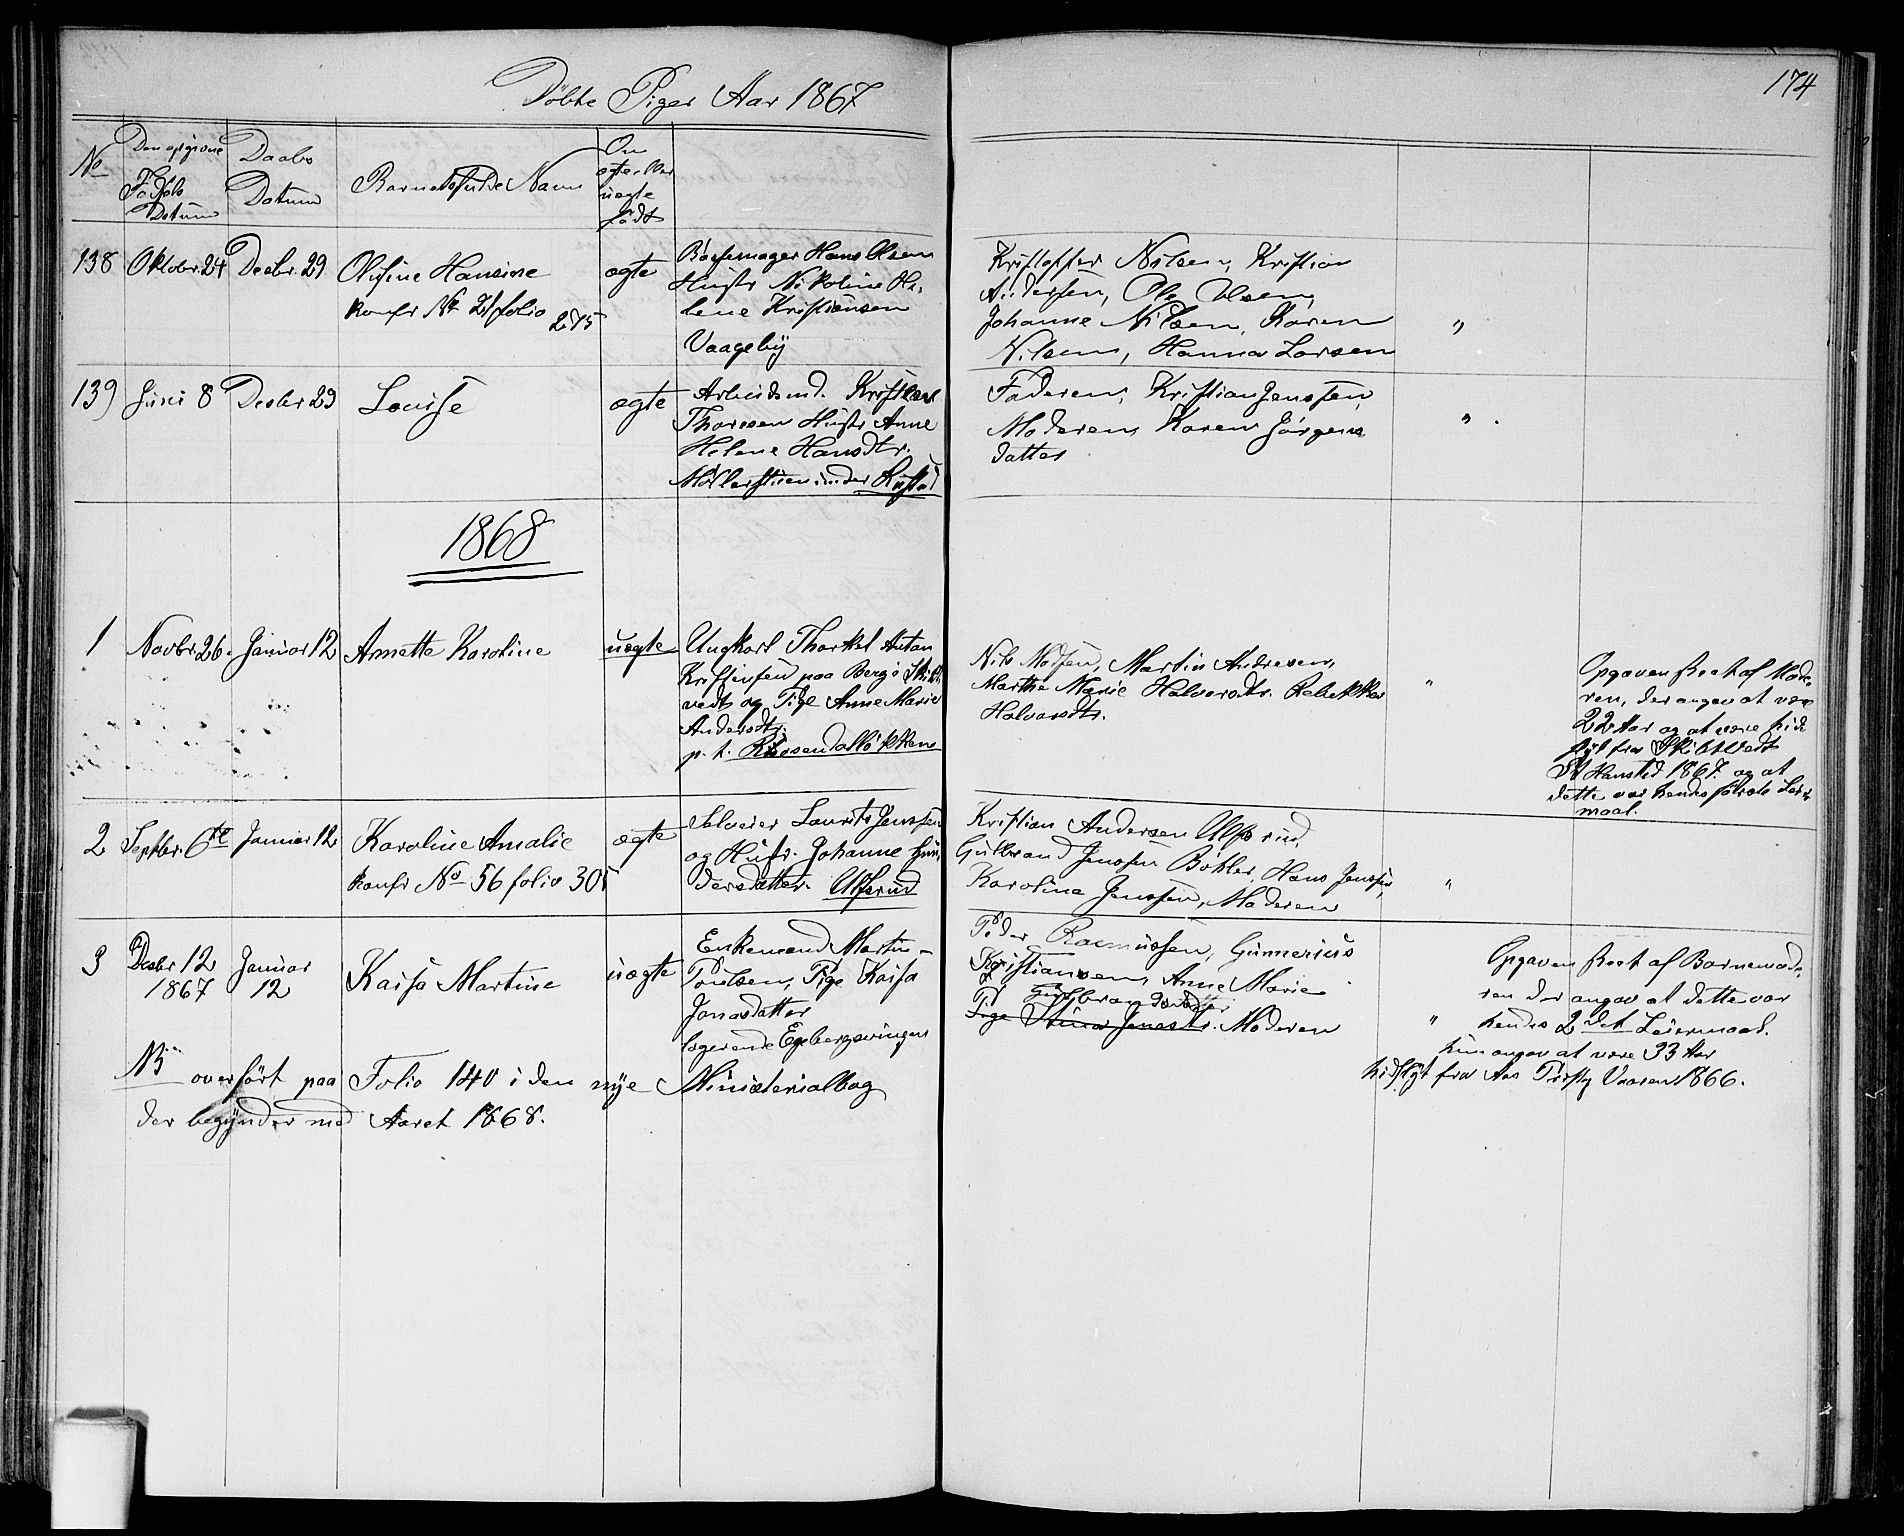 Döbte Piger Aar 1867
174
No
Den opgivne
Födsels
Datum
Daabs
Datum
Barnets fulde Navn
Om
ægte eller
uægte
födt
138 Oktobr. 24 Decbr. 29 Olisine Hansine ægte
konfr No 21 folio 275
Bössemager Hans Olsen
Hustr Nikoline He-
lene Kristiansen
Vaageby
Kristoffer Nilsen, Kristian
Andersen, Ole Olsen,
Johanne Nilsen, Karen
Nilsen, Hanna Larsen
"
139 Juni 8 Decbr 29 Louise ægte
Arbeidsmd. Kristian
Thoresen Hustr Anne
Helene Hansdtr.
Möllerstuen under
Faderen, Kristian Jenssen,
Moderen, Karen Jörgens
datter
"
1868
1 Novbr. 26. Januar 12 Annette Karoline uægte
Ungkarl Thorkel Anton
Kristensen paa Berg i Skibt-
vedt og Pige Anne Marie
Andersdtr.
p. t. Rosendallökken
Nils Madsen, Martin Andresen,
Marthe Marie Halvorsdtr. Rebekka
Halvorsdtr.
"
Opgaven skeet af Mode-
ren, der angav at være
22 Aar og at være hid
flyt fra Skibtvedt
St Hanstid 1867. og at
dette var hendes förste Leier-
maal.
2 Septbr. 6te Januar 12 Karoline Amalie ægte
konfr No 56 folio 305
Selveier Laurits Jenssen
og Hustr. Johanne Gun-
dersdatter. Ulfsrud
Kristian Andersen Ulfsrud,
Gulbrand Jenssen Böhler, Hans Jenssen,
Karoline Jenssen, Moderen
"
3 Decbr 12 Januar Kaisa Martine uægte
1867 12
Enkemand Martin
Poulsen, Pige Kaisa
Jonasdatter
logerende Egebergsvingen
Peder Rasmussen, Gunnerius
Kristiansen, Anne Marie
Gulbrandsdatter
Pige Stina Jonasdtr. Moderen
"
Opgaven skeet af Barnemode-
ren der angav at dette var
hendes 2det Leiermaal.
hun angav at være 33 Aar
hidflyt fra Aas Prstgj Vaaren 1866.
NB overfört paa Folio 140 i den nye Ministerialbog
der begynder med Aaret 1868.